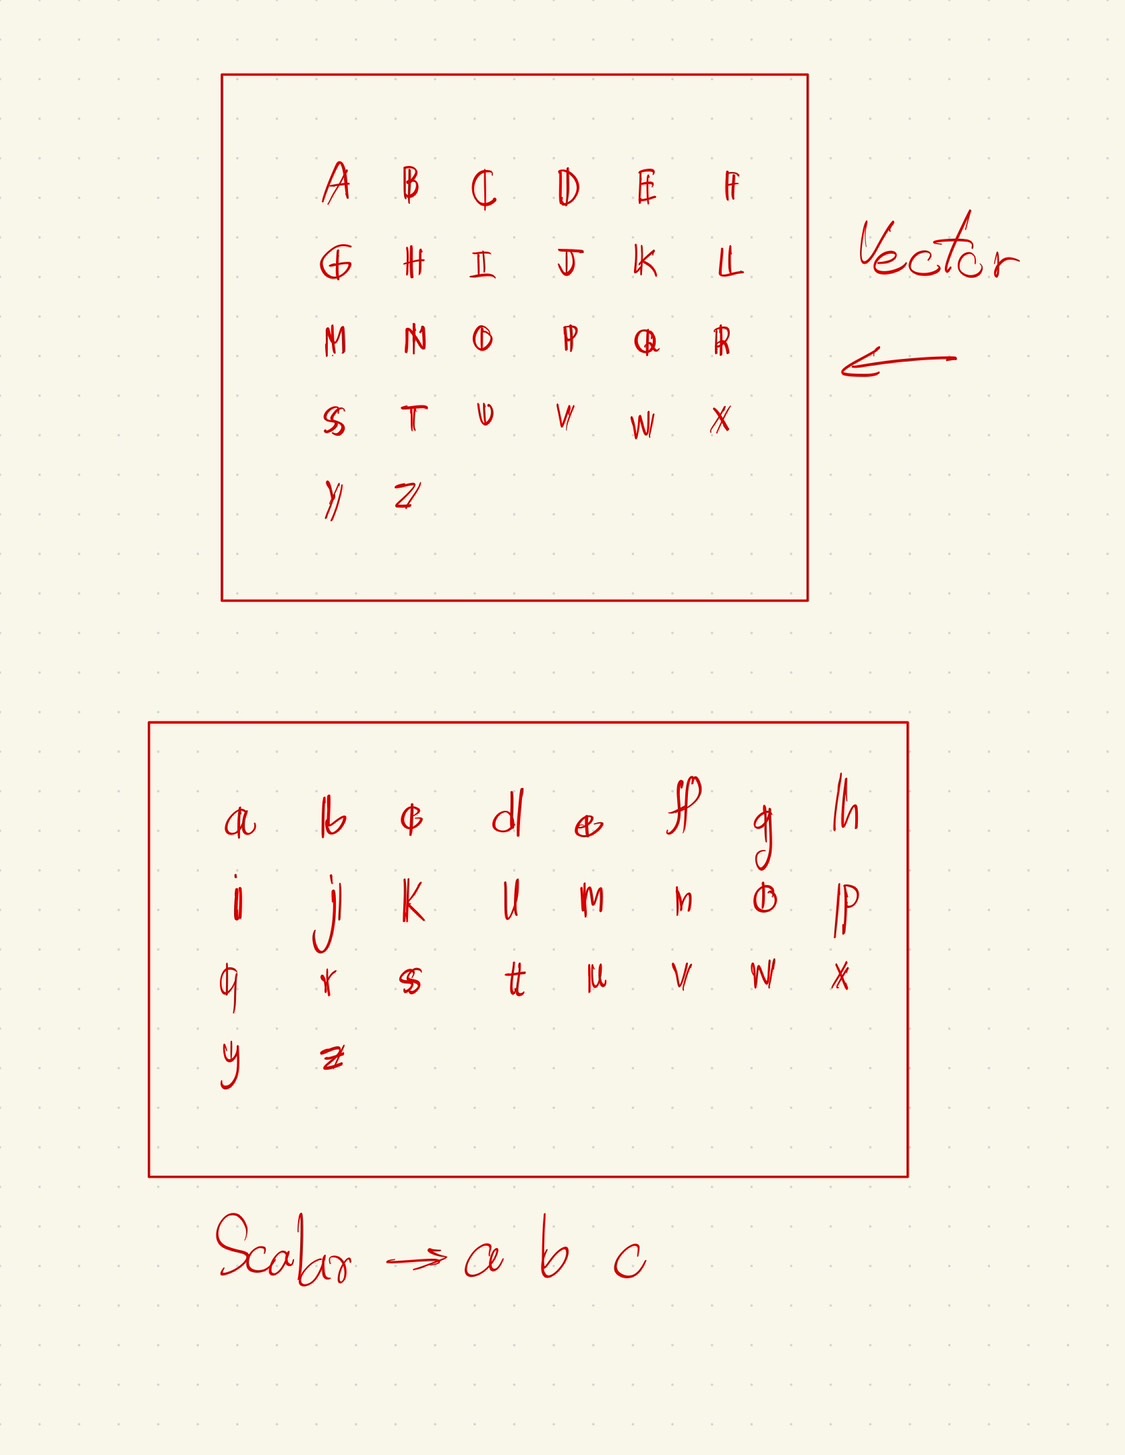 A B C D E F
G H I J K L
Vector
M N O P Q R
←
S T U V W X
Y Z
a b c d e f g h
i j k l m n o p
q r s t u v w x
y z
Scalar → a b c